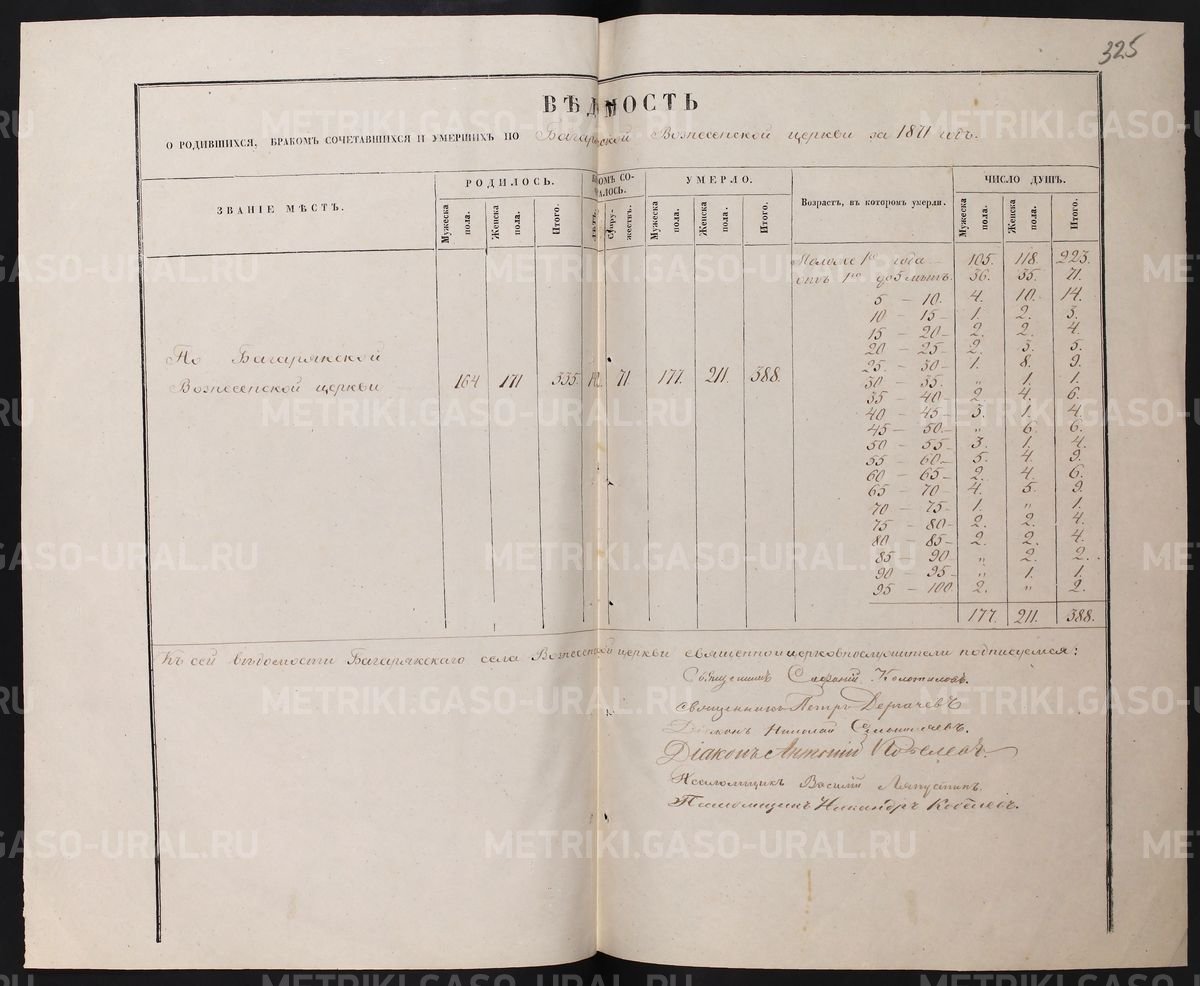 325
ВѢДМОСТЬ
О РОДИВШИХСЯ, БРАКОМЪ СОЧЕТАВШИХСЯ И УМЕРШИХЪ ПО Багарякской Вознесенской церкви за 1871 годъ.
ЗВАНІЕ МѢСТЪ.
РОДИЛОСЬ.
УМЕРЛО.
Возрастъ, въ которомъ умерли.
ЧИСЛО ДУШЪ.
Мужеска пола. Женска пола. Итого. Супружествъ. Мужеска пола. Женска пола. Итого. Мужеска пола. Женска пола. Итого.
Моложе 1го года 105. 118. 223.
отъ 1го до 5 лѣтъ. 36. 35. 71.
5 – 10. 4. 10. 14.
10 – 15 1. 2. 3.
15 – 20 2. 2. 4.
20 – 25 2. 3. 5.
25 – 30 1. 8. 9.
30 – 35. „ 1. 1.
35 – 40 2. 4. 6.
40 – 45 3. 1. 4.
45 – 50 „ 6. 6.
50 – 55 3. 1. 4.
55 – 60 5. 4. 9.
60 – 65 2. 4. 6.
65 – 70 4. 5. 9.
70 – 75 1. „ 1.
75 – 80 2. 2. 4.
80 – 85 2. 2. 4.
85 – 90 „ 2. 2.
90 – 95 „ 1. 1.
95 – 100 2. „ 2.
177. 211. 388.
По Багарякской
Вознесенской церкви 164 171 335. 71 177. 211. 388.
Къ сей вѣдомости Багарякскаго села Вознесенской церкви священно и церковнослужители подписуемся:
Священникъ
Священникъ Петръ Дергачевъ
Діаконъ Николай
Діаконъ Антоній
Псаломщикъ Василій Ляпустинъ.
Псаломщикъ Никандръ
METRIKI.GASO-URAL.RU